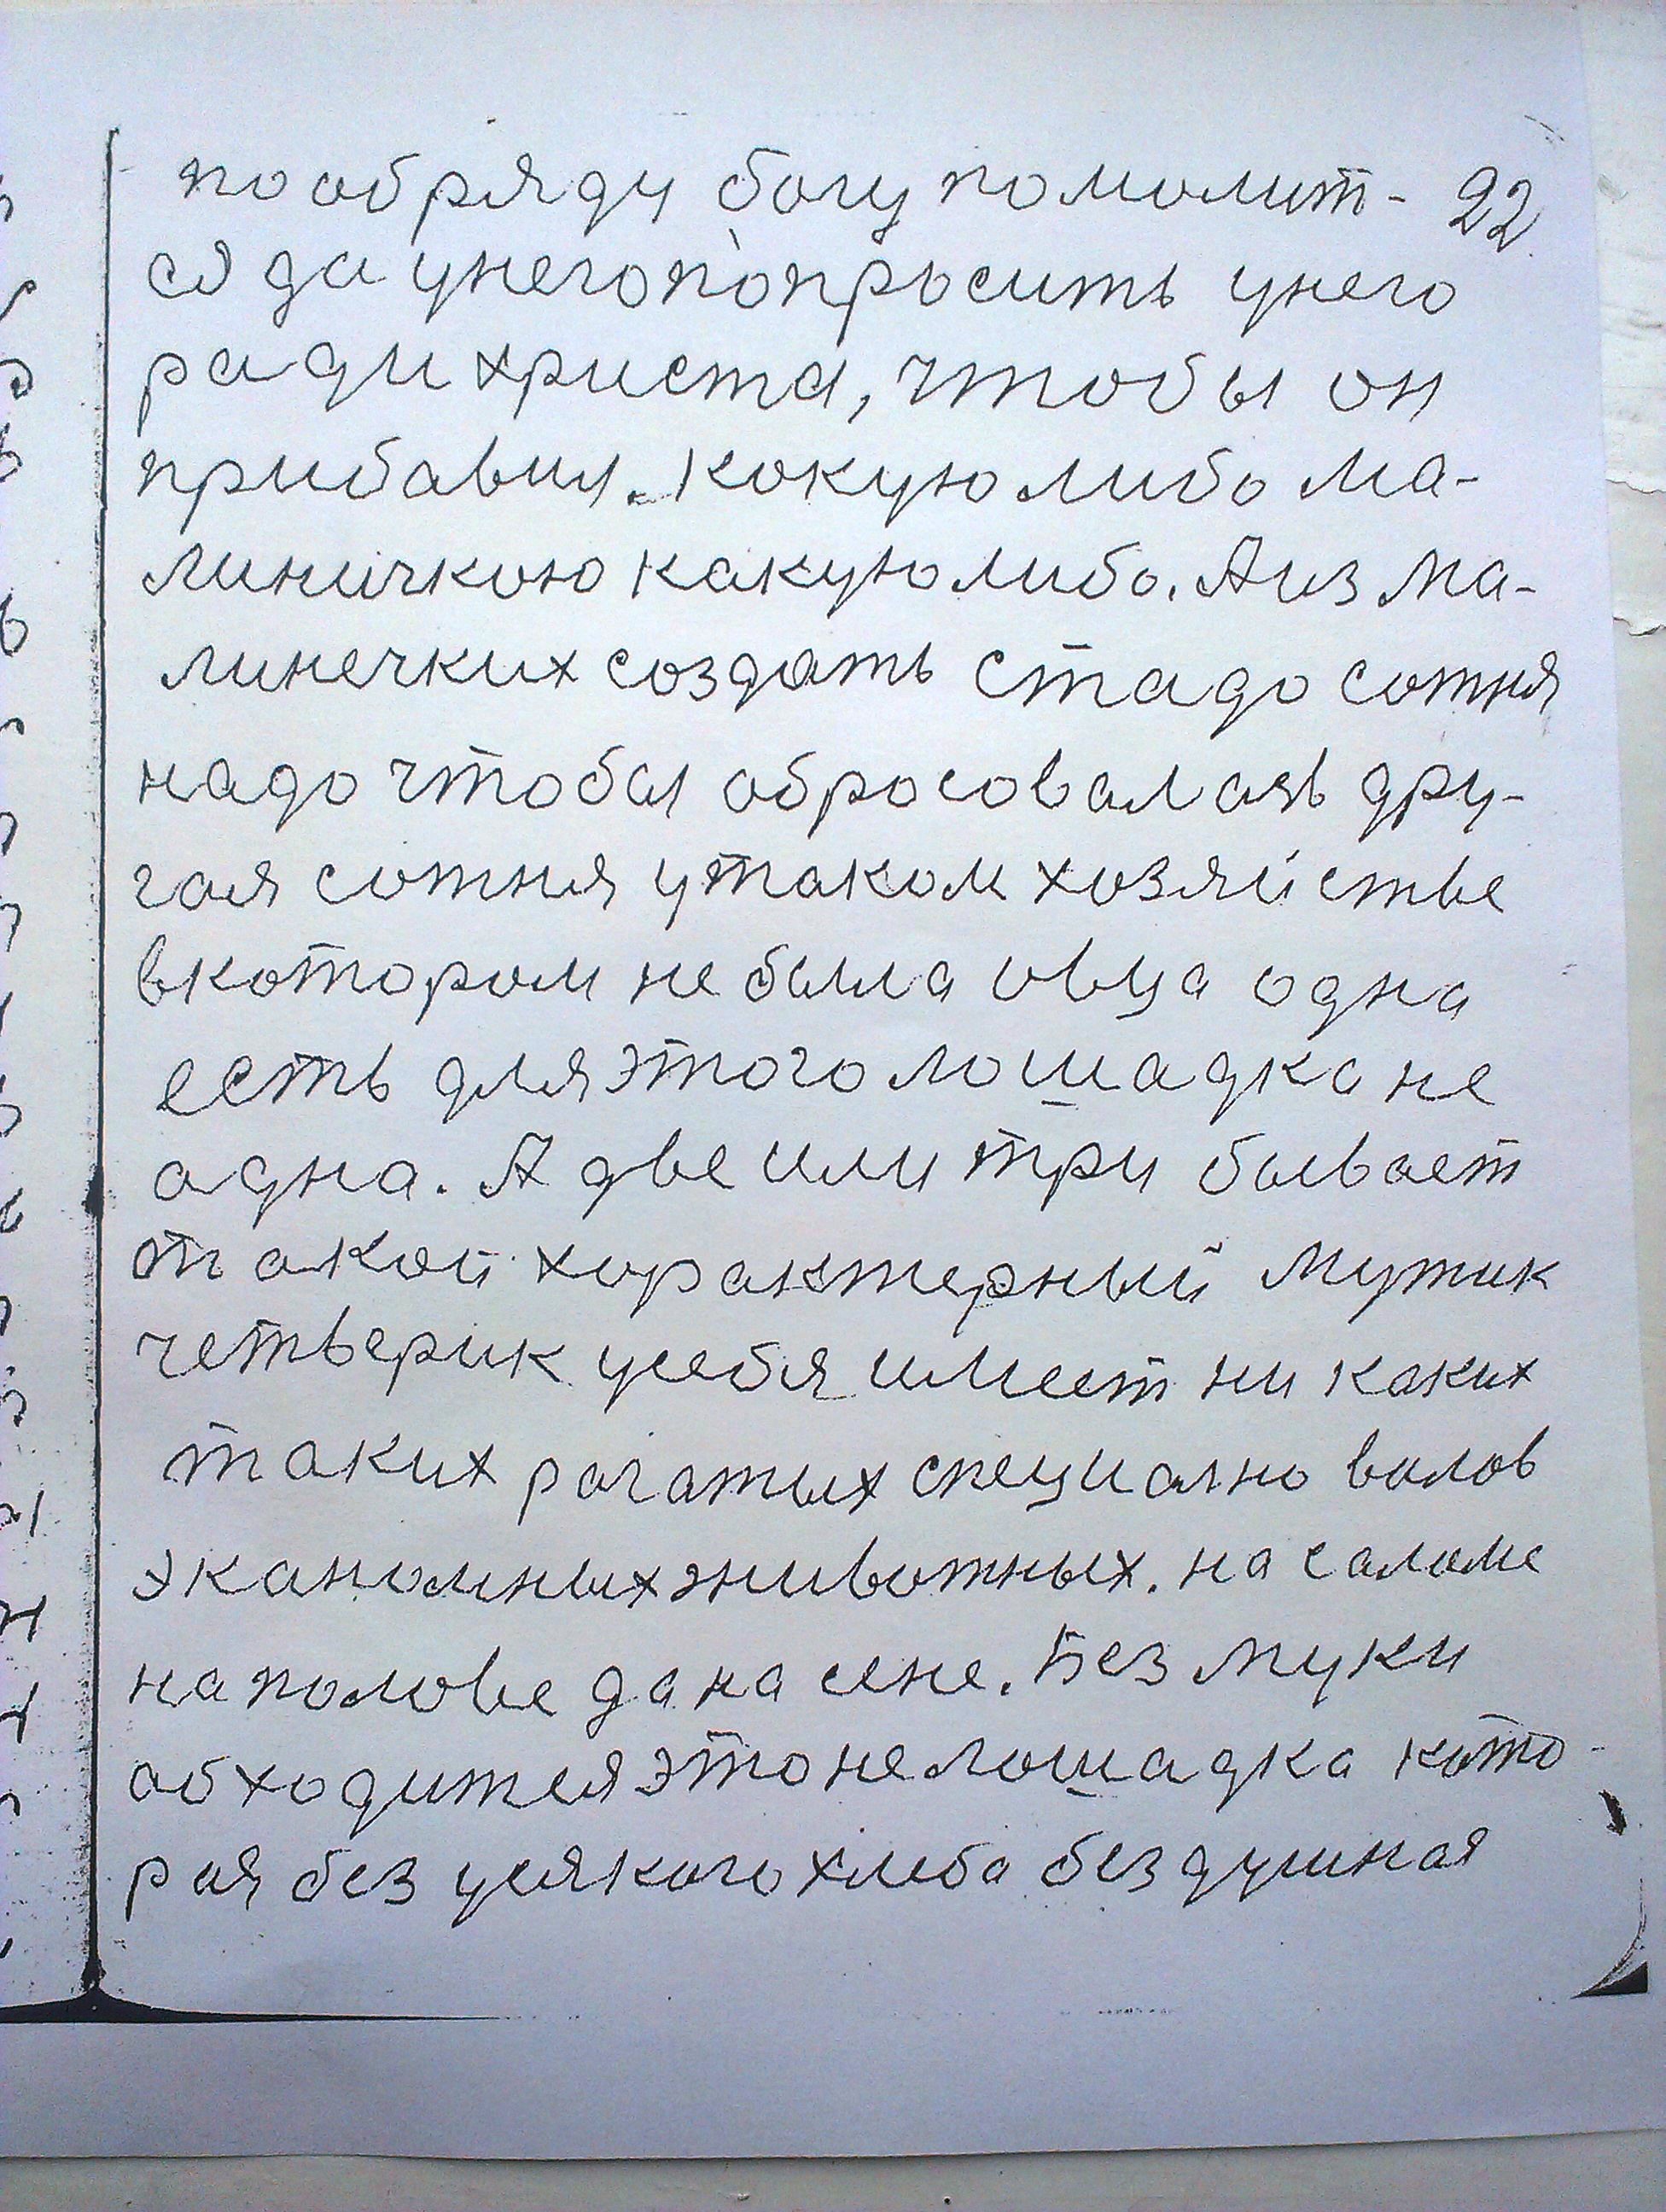 по обряду богу помолит- 22
ся да у него попросить унего
ради христа, чтобы он
прибавил. кокую либо ма-
линичкою какую либо. А из ма-
линечких создать стадо сотня
надо чтобы обросовалась дру-
гая сотня у таком хозяйстве
в котором не была овца одна
есть для этого лошадка не
адна. А две или три бывает
такой характерный Мужик
четверик у себя имеет ни каких
таких рагатых специално волов
эканомных животных. на саломе
на полове да на сене. Без муки
обходится это не лошадка кото-
рая без усякого хлеба бездушная